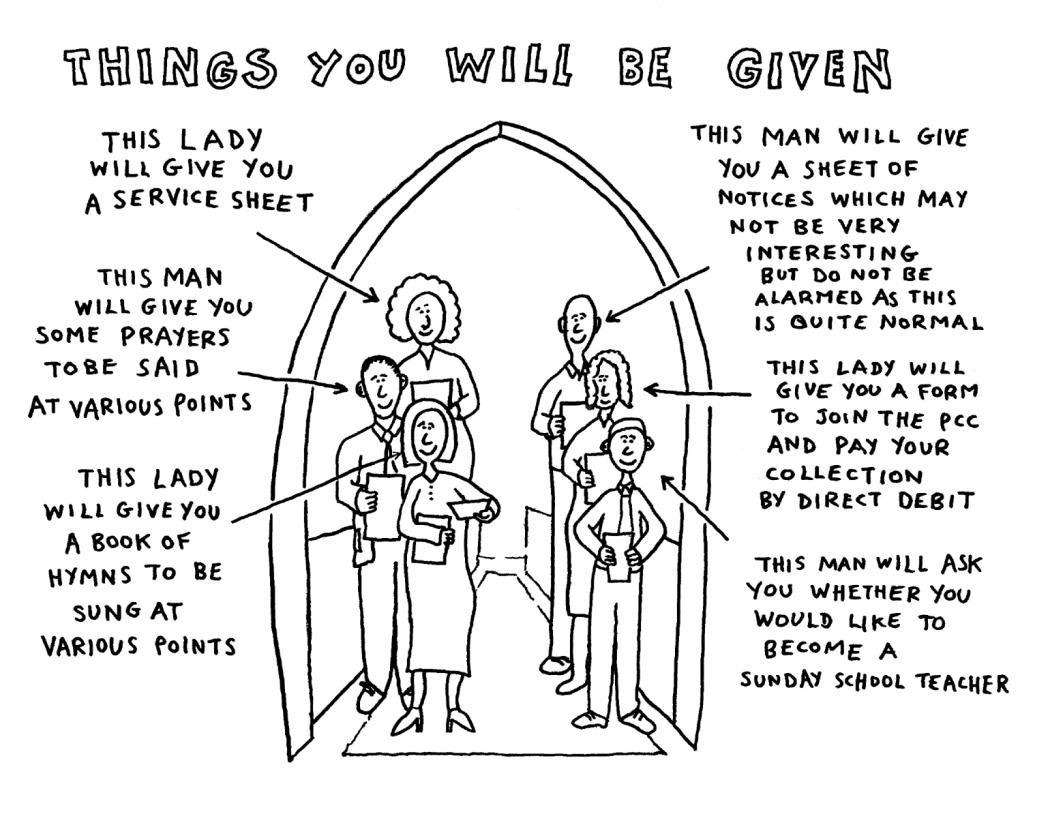 THINGS YOU WILL BE GIVEN
THIS LADY
WILL GIVE YOU
A SERVICE SHEET
THIS MAN
WILL GIVE YOU
SOME PRAYERS
TO BE SAID
AT VARIOUS POINTS
THIS LADY
WILL GIVE YOU
A BOOK OF
HYMNS TO BE
SUNG AT
VARIOUS POINTS
THIS MAN WILL GIVE
YOU A SHEET OF
NOTICES WHICH MAY
NOT BE VERY
INTERESTING
BUT DO NOT BE
ALARMED AS THIS
IS QUITE NORMAL
THIS LADY WILL
GIVE YOU A FORM
TO JOIN THE PCC
AND PAY YOUR
COLLECTION
BY DIRECT DEBIT
THIS MAN WILL ASK
YOU WHETHER YOU
WOULD LIKE TO
BECOME A
SUNDAY SCHOOL TEACHER